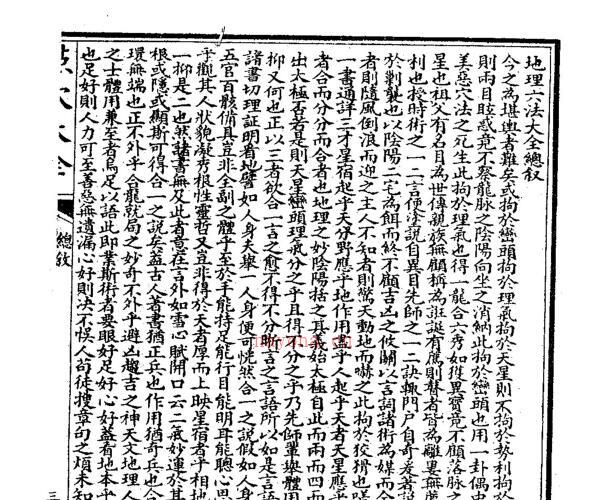 地理六法大全總叙
今之為堪輿者難矣或拘於巒頭拘於理氣拘於天星則不拘於勢利拘於
則兩目眩惑竟不察龍脉之陰陽向坐之消納此拘於巒頭也用一卦偶中
美惡穴法之死生此拘於理氣也得一龍合六秀如獲異寶竟不顧落脉
星也祖父有名目為世傳親族無顧稱為誑誕有薦則瞽者皆為離婁無薦
利也授時術之一二言便塗說自異目先師之一二訣輙門戶自奇矣者説
於剿襲也以陰陽二宅為餌而終不顧吉凶之攸關以言詞諸術為媒而今
者則隨風倒浪而迎之主人不知者則驚天動地而嚇之此拘於狡猾也嗟
一書通詳三才星宿起乎天分野應乎地作用盡乎人起乎天者天星應乎
者合而分分而合者也地理之妙陰陽括之其義始太極自此而兩而四而
出太極否者是則天星巒頭理氣分之乎且得不分之乎乃先師罩舉體用
抑又何也正以三者欲合一言之愈不得不分而言之言語所以如是言語
諸書切理証明看地譬如人身夫舉一人身便可恍然合一之說假如人身
五官百骸備具豈非全副之體乎至於手能持足能行目能明耳能聰心思
乎觀其人狀貌凝秀根性靈哲又豈非得於天者厚而上映星宿者乎相地
一抑是二也然諸書無及此者意在言外如雪心賦開口云二氣妙運於其
根或隱或顯斯可得合一之說矣蓋古人著書猶正兵也作用猶奇兵也合
環無端也正不外乎合龍就局之妙奇不外乎避凶趨吉之神天文地理人
之士體用兼至者焉足以語此即業斯術者要眼好足好心好蓋看地本乎
也足好則人力可至善惡無遺漏心好則决不悞人苟徒搜章句之煩未知
大全
總叙
三